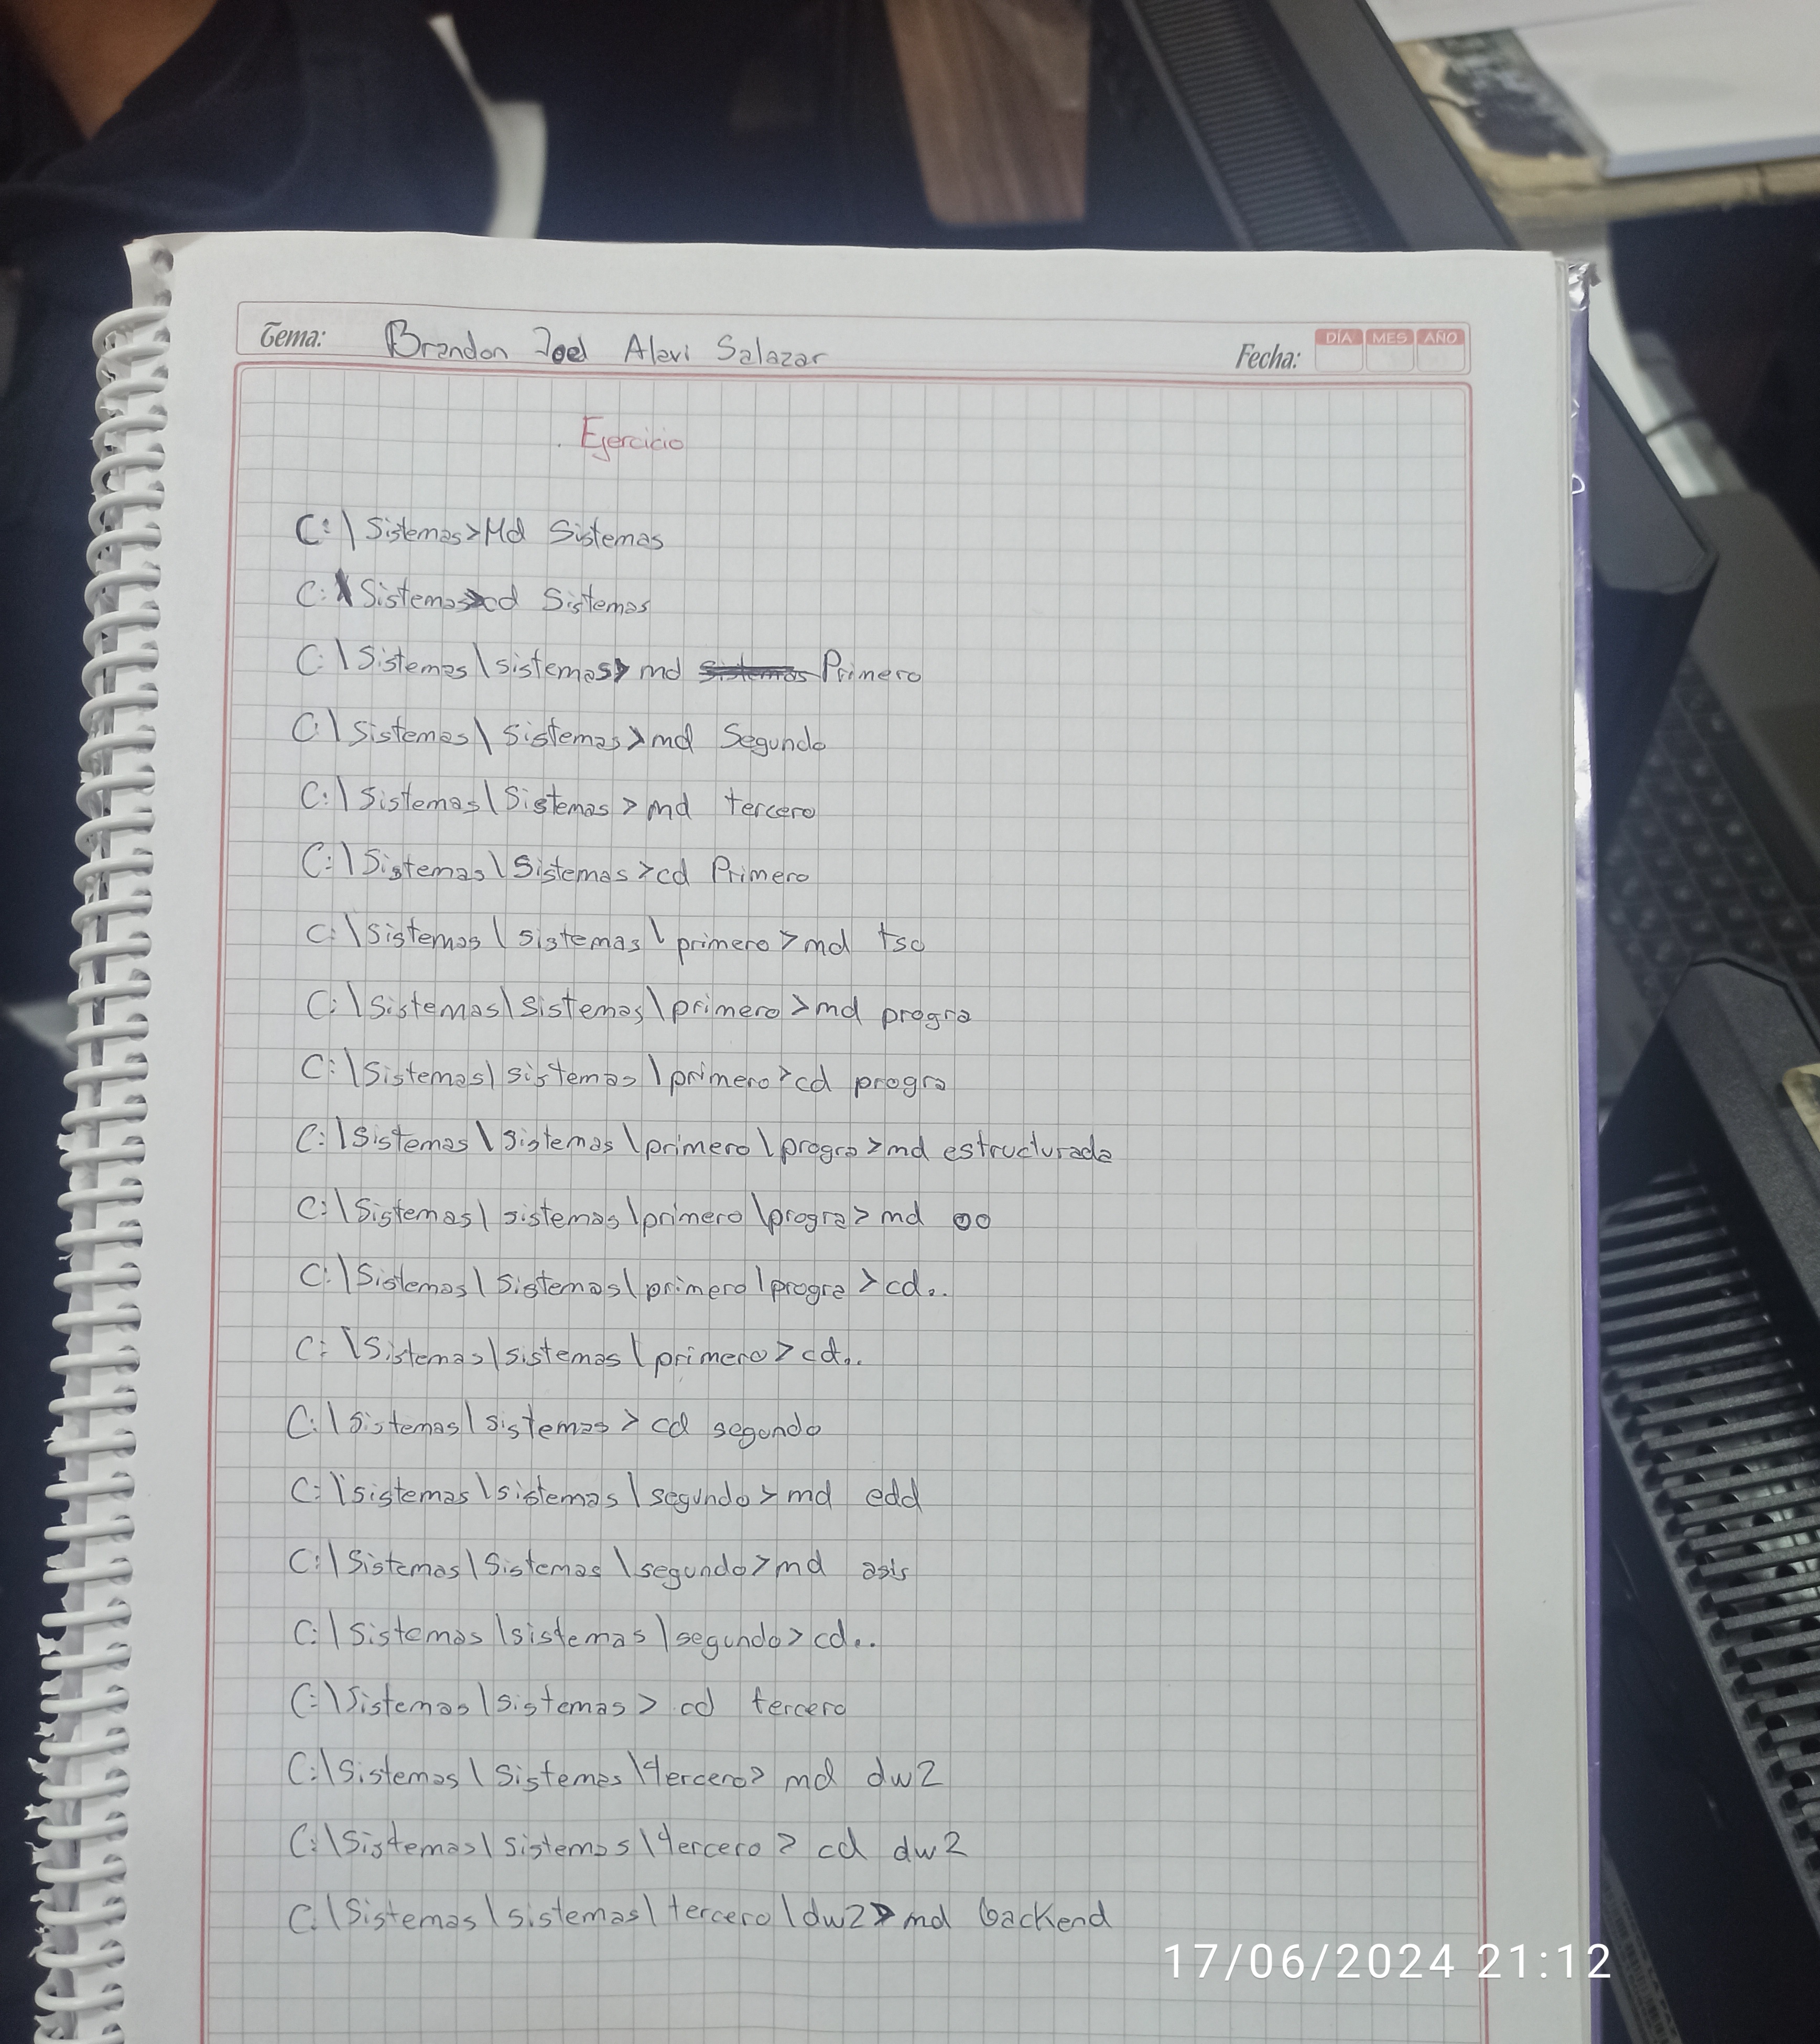 Tema: Brandon Joel Alavi Salazar Fecha: DÍA MES AÑO
Ejercicio
C:\Sistemas>Md Sistemas
C:\Sistemas>cd Sistemas
C:\Sistemas\sistemas> md sistemas Primero
C:\Sistemas\sistemas>md Segundo
C:\Sistemas\Sistemas>md tercero
C:\Sistemas\Sistemas>cd Primero
C:\Sistemas\sistemas\primero>md tso
C:\Sistemas\sistemas\primero>md progra
C:\Sistemas\sistemas\primero>cd progra
C:\Sistemas\sistemas\primero\progra>md estructurada
C:\Sistemas\sistemas\primero\progra>md oo
C:\Sistemas\Sistemas\primero\progra>cd..
C:\Sistemas\sistemas\primero>cd..
C:\Sistemas\sistemas>cd segundo
C:\sistemas\sistemas\segundo>md edd
C:\Sistemas\Sistemas\segundo>md asis
C:\Sistemas\sistemas\segundo>cd..
C:\Sistemas\sistemas>cd tercero
C:\Sistemas\Sistemas\tercero> md dw2
C:\Sistemas\sistemas\tercero> cd dw2
C:\Sistemas\sistemas\tercero\dw2>md backend
17/06/2024 21:12